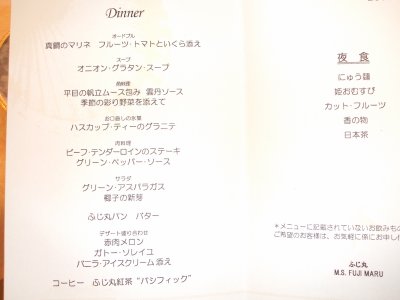 Dinner
オードブル
真鯛のマリネ フルーツ・トマトといくら添え
スープ
オニオン・グラタン・スープ
魚料理
平目の帆立ムース包み 雲丹ソース
季節の彩り野菜を添えて
お口直しの氷菓
ハスカップ・ティーのグラニテ
肉料理
ビーフ・テンダーロインのステーキ
グリーン・ペッパー・ソース
サラダ
グリーン・アスパラガス
椰子の新芽
ふじ丸パン バター
デザート盛り合わせ
赤肉メロン
ガトー・ソレイユ
バニラ・アイスクリーム添え
コーヒー ふじ丸紅茶“パシフィック”
夜 食
にゅう麺
姫おむすび
カット・フルーツ
香の物
日本茶
*メニューに記載されていないお飲みもの
ご希望のお客様は、お気軽に係にお申し付
ふじ丸
M.S. FUJI MARU